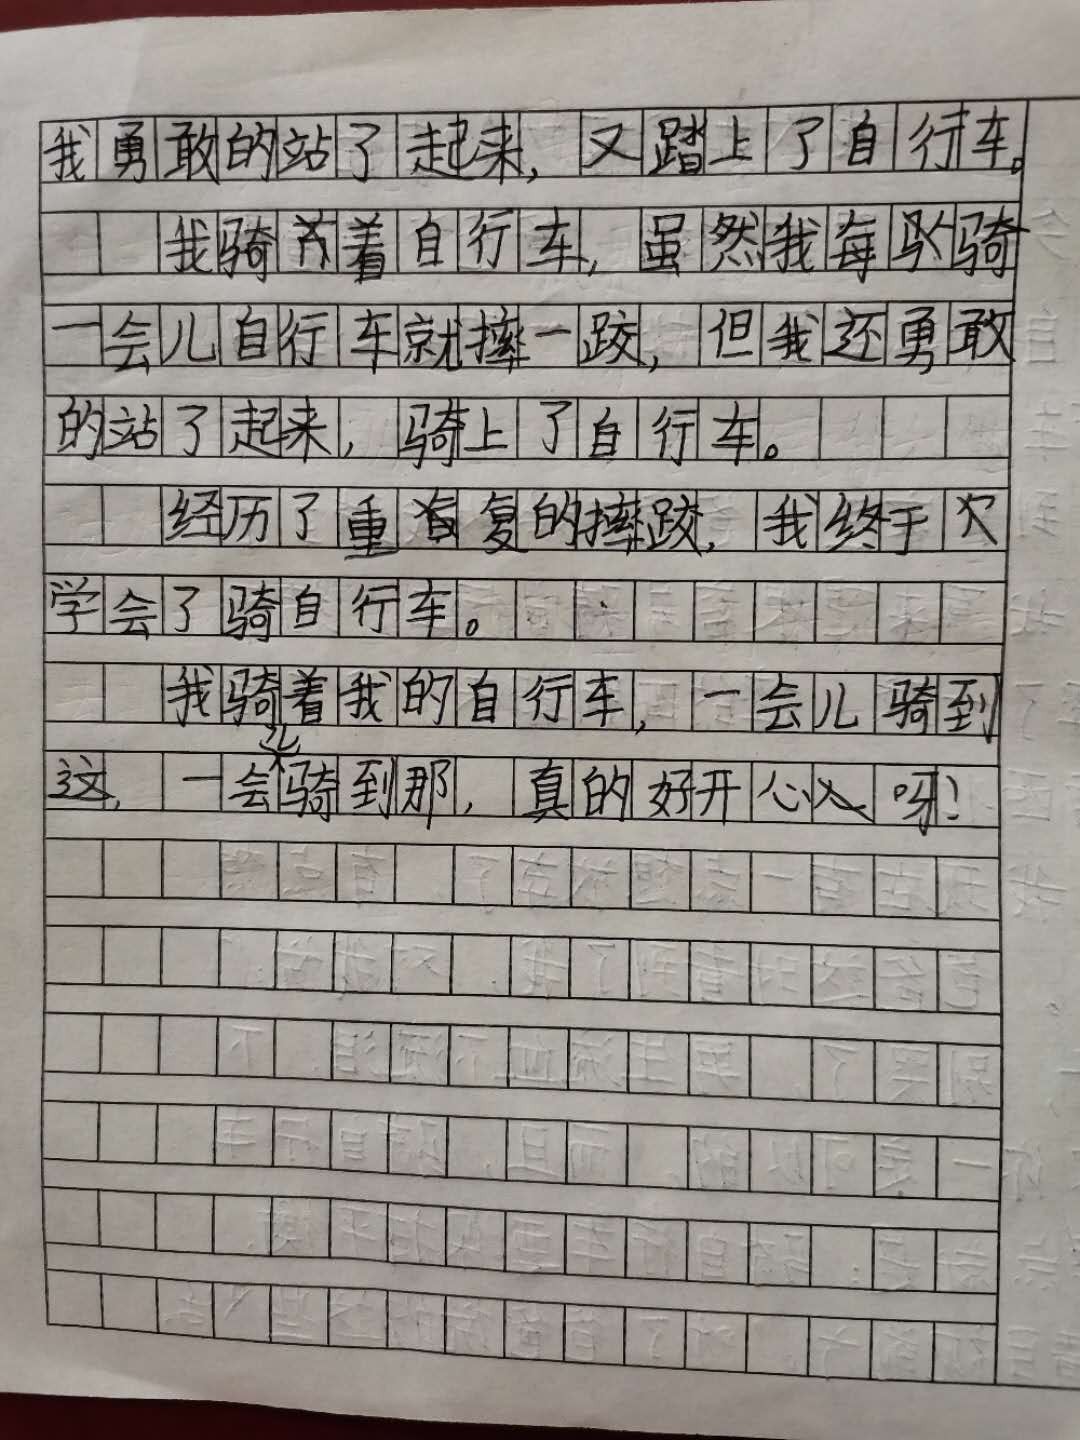 我勇敢的站了起来，又踏上了自行车。
我骑着自行车，虽然我每骑
一会儿自行车就摔一跤，但我还勇敢
的站了起来，骑上了自行车。
经历了重复的摔跤，我终于
学会了骑自行车。
我骑着我的自行车，一会儿骑到
这，一会儿骑到那，真的好开心呀！